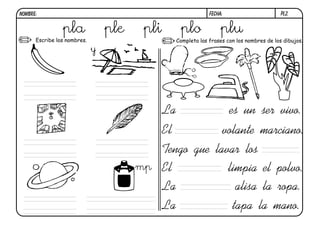 NOMBRE: FECHA: PL2
pla ple pli plo plu
Escribe los nombres.
Completa las frases con los nombres de los dibujos.
y
mp
La es un ser vivo.
El volante marciano.
Tengo que lavar los
El limpia el polvo.
La alisa la ropa.
La tapa la mano.